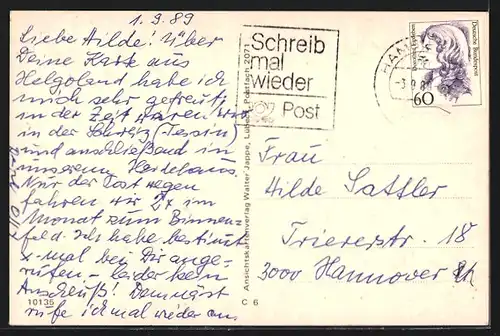 1.9.89
Liebe Hilde! Über
Deine Karte aus
Helgoland habe ich
mich sehr gefreut,
in der Zeit waren wir
in der Schweiz (Tessin)
und anschließend in
unserem Heidehaus.
Nur der Post wegen
fahren wir 2x im
Monat zum Binnen-
feld. Ich habe bestimmt
x-mal bei Dir ange-
rufen – leider kein
Anschluß! Demnächst
rufe ich mal wieder an
10135
C 6
Ansichtskartenverlag Walter Jappe, Lübeck, Postfach 2071
Schreib
mal
wieder
Post
HAM
Deutsche Bundespost
60
Frau
Hilde Sattler
Triererstr. 18
3000 Hannover